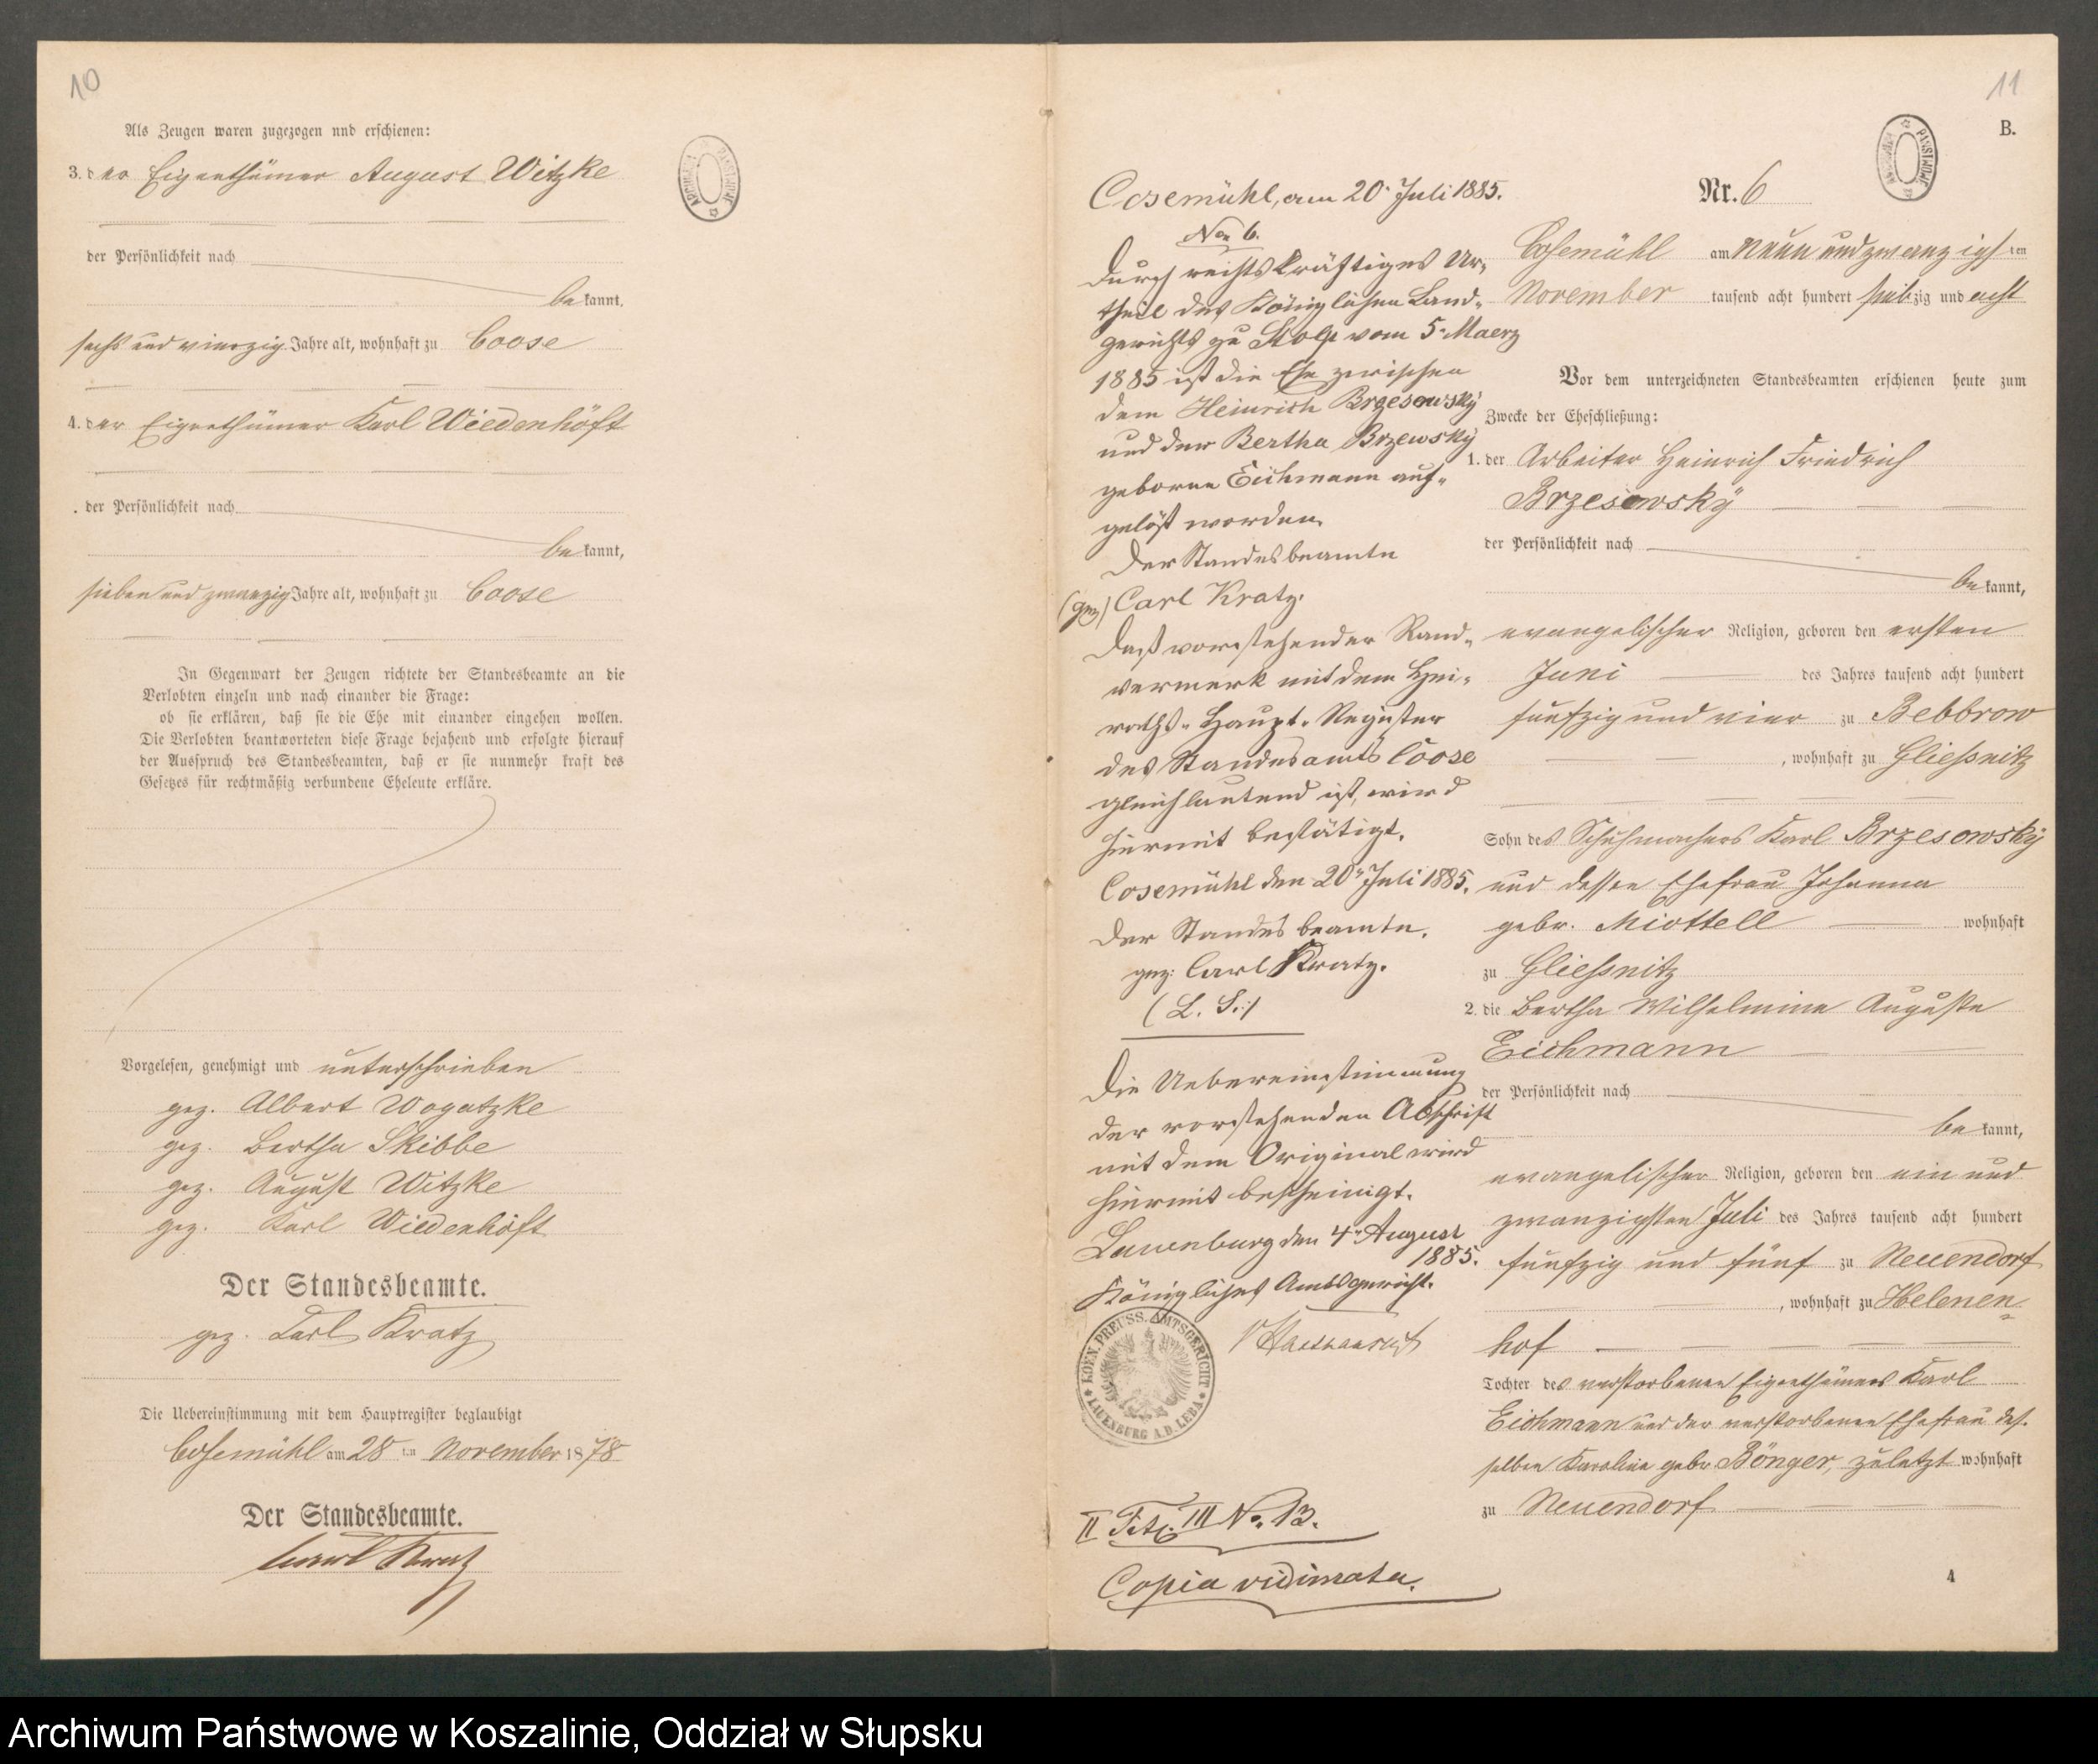 10
Als Zeugen waren zugezogen nnd erschienen:
3. der Eigenthümer August Witzke
der Persönlichkeit nach
bekannt,
sechs und vierzig Jahre alt, wohnhaft zu Coose
4. der Eigenthümer Karl Wiedenhöft
der Persönlichkeit nach
bekannt,
sieben und zwanzig Jahre alt, wohnhaft zu Coose
In Gegenwart der Zeugen richtete der Standesbeamte an die
Verlobten einzeln und nach einander die Frage:
ob sie erklären, daß sie die Ehe mit einander eingehen wollen.
Die Verlobten beantworteten diese Frage bejahend und erfolgte hierauf
der Ausspruch des Standesbeamten, daß er sie nunmehr kraft des
Gesetzes für rechtmäßig verbundene Eheleute erkläre.
Vorgelesen, genehmigt und unterschrieben
gez. Albert Wogatzke
gez. Bertha Skibbe
gez. August Witzke
gez. Karl Wiedenhöft
Der Standesbeamte.
gez. Carl Kratz
Die Uebereinstimmung mit dem Hauptregister beglaubigt
Cosemühl am 28 ten November 1878
Der Standesbeamte.
Carl Kratz
ARCHIWUM PAŃSTWOWE
11
B.
ARCHIWUM PAŃSTWOWE
Cosemühl, am 20. Juli 1885.
No 6.
Durch rechtskräftiges Ur-
theil des Königlichen Land-
gerichts zu Stolp vom 5. Maerz
1885 ist die Ehe zwischen
dem Heinrich Brzesowsky
und der Bertha Brzewsky
geborne Eichmann auf-
gelöst worden.
Der Standesbeamte
(gez) Carl Kratz.
Daß vorstehender Rand-
vermerk mit dem Hei-
raths-Haupt-Register
des Standesamts Coose
gleichlautend ist, wird
hiermit bestätigt.
Cosemühl den 20. Juli 1885.
Der Standesbeamte.
gez: Carl Kratz.
(L. S.)
Die Uebereinstimmung
der vorstehenden Abschrift
mit dem Original wird
hiermit bescheinigt.
Lauenburg den 4. August
1885.
Königliches Amtsgericht.
KOEN. PREUSS. AMTSGERICHT
LAUENBURG A.D. LEBA
III No. 13.
Copia vidimata.
Nr. 6
Cosemühl am neun und zwanzigsten
November tausend acht hundert siebzig und acht
Vor dem unterzeichneten Standesbeamten erschienen heute zum
Zwecke der Eheschließung:
1. der Arbeiter Heinrich Friedrich
Brzesowsky
der Persönlichkeit nach
bekannt,
evangelischer Religion, geboren den ersten
Juni des Jahres tausend acht hundert
fünfzig und vier zu Bebbrow
, wohnhaft zu Gliessnitz
Sohn des Schuhmachers Karl Brzesowsky
und dessen Ehefrau Johanna
gebr. Miottell wohnhaft
zu Gliessnitz
2. die Bertha Wilhelmine Auguste
Eichmann
der Persönlichkeit nach
bekannt,
evangelischer Religion, geboren den ein und
zwanzigsten Juli des Jahres tausend acht hundert
fünfzig und fünf zu Neuendorf
, wohnhaft zu Helenen
hof
Tochter des verstorbenen Eigenthümers Karl
Eichmann und der verstorbenen Ehefrau des-
selben Karoline gebr. Bönger, zuletzt wohnhaft
zu Neuendorf
4
Archiwum Państwowe w Koszalinie, Oddział w Słupsku